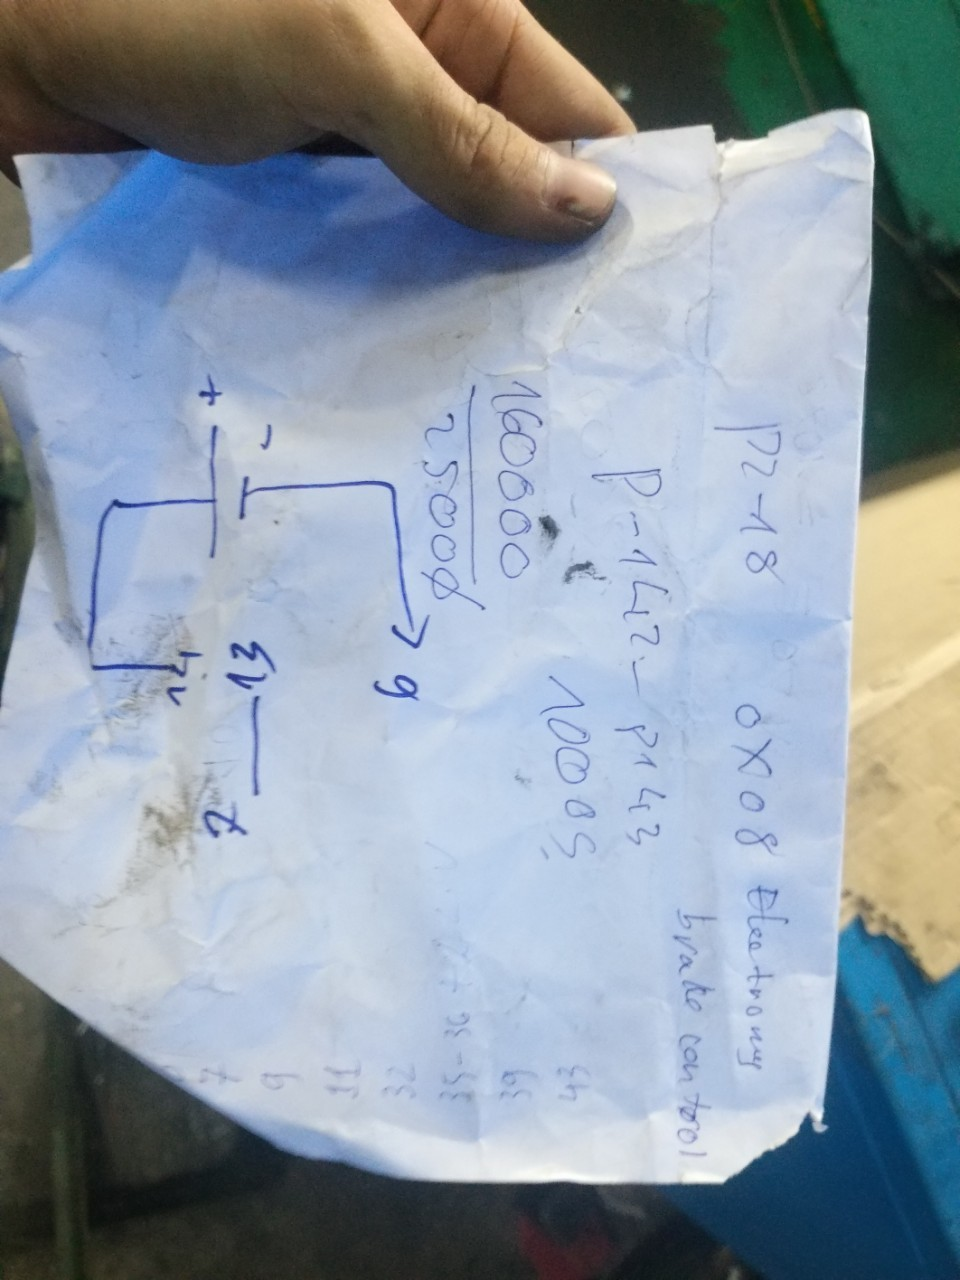 P2-18 0x08 Electronny
brake conterol
P-142- P143
10005
160000
25000
+
-
6
14
13 — 7
43
39
35-36
32
11
9
7